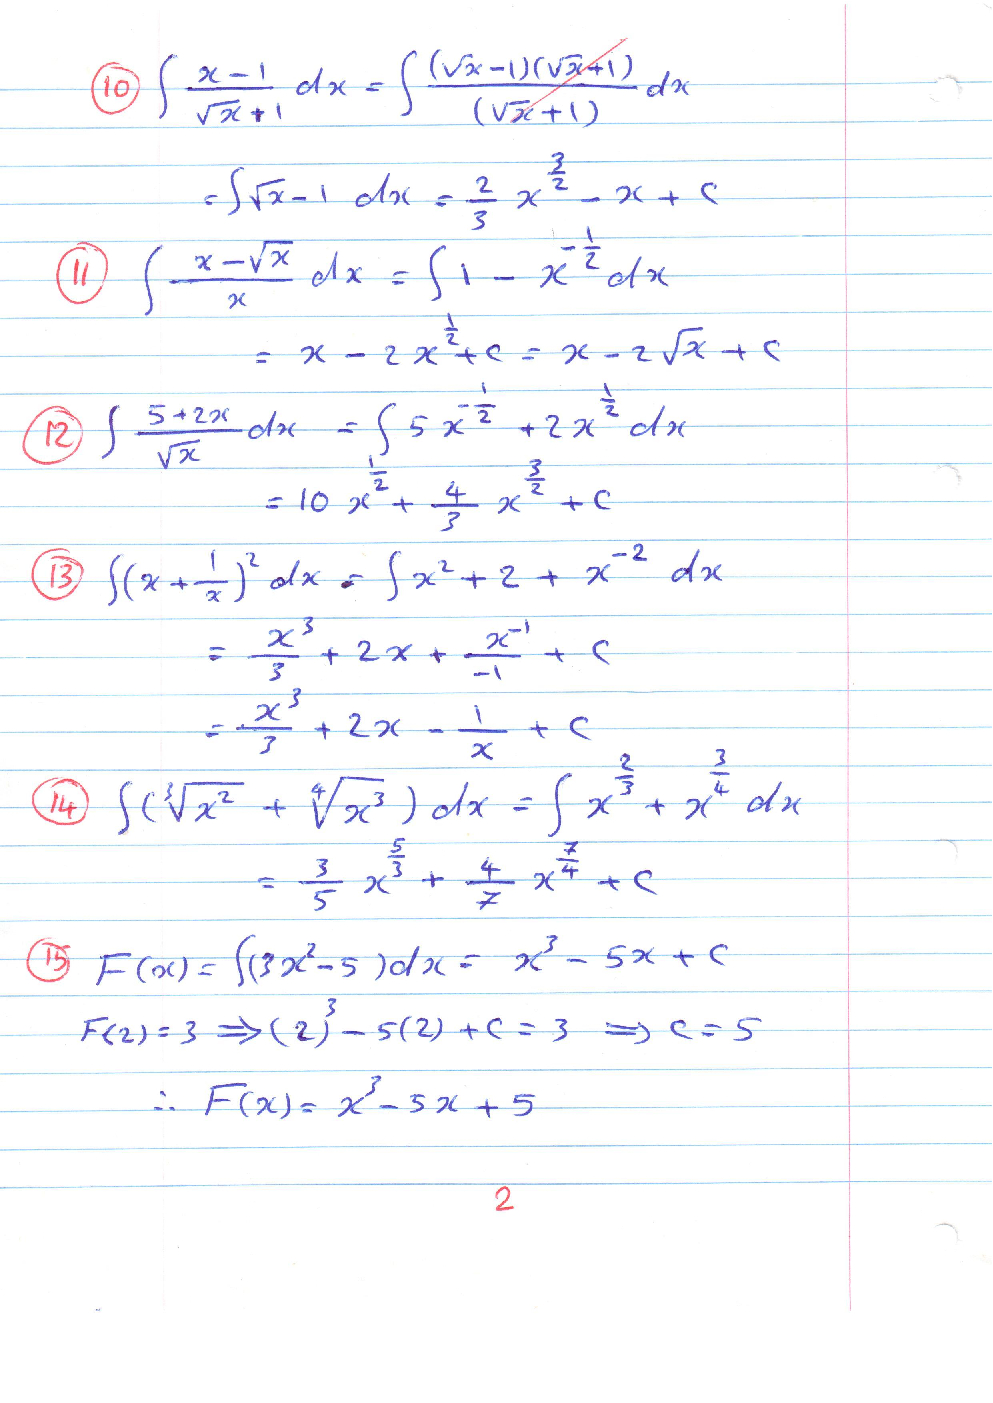 ⑩ ∫ (x-1)/(√x+1) dx = ∫ ((√x-1)(√x+1))/((√x+1)) dx
= ∫√x-1 dx = 2/3 x^(3/2) - x + c
⑪ ∫ (x-√x)/x dx = ∫ 1 - x^(-1/2) dx
= x - 2x^(1/2) + c = x - 2√x + c
⑫ ∫ (5+2x)/√x dx = ∫ 5x^(-1/2) + 2x^(1/2) dx
= 10 x^(1/2) + 4/3 x^(3/2) + c
⑬ ∫(x + 1/x)² dx = ∫ x² + 2 + x^(-2) dx
= x³/3 + 2x + x^(-1)/-1 + c
= x³/3 + 2x - 1/x + c
⑭ ∫(∛x² + ∜x³) dx = ∫ x^(2/3) + x^(3/4) dx
= 3/5 x^(5/3) + 4/7 x^(7/4) + c
⑮ F(x) = ∫(3x²-5)dx = x³ - 5x + c
F(2) = 3 ⟹ (2)³ - 5(2) + c = 3 ⟹ c = 5
∴ F(x) = x³ - 5x + 5
2